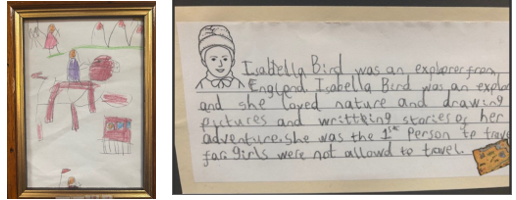 Isabella Bird was an explorer from
England. Isabella Bird was an explor
and she loved nature and drawing
pictures and writting stories of her
adventure. she was the 1st Person to trave
far. girls were not allowed to travel.